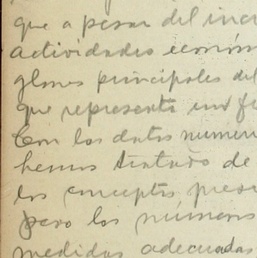 que a pesar del incr
actividades económ
glones principales del
que representa un fu
Con los datos numer
hemos tratado de
los conceptos prece
pero los números
medidas adecuadas